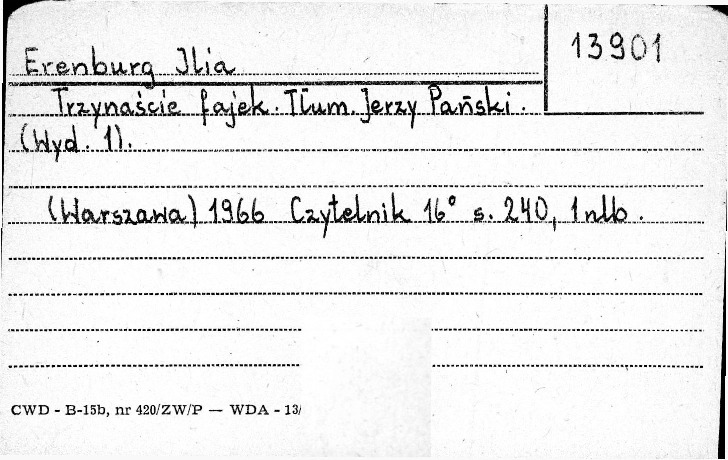 Erenburg Ilia
13901
Trzynaście fajek. Tłum. Jerzy Pański.
(Wyd. 1).
(Warszawa) 1966 Czytelnik 16° s. 240, 1 nlb.
CWD - B-15b, nr 420/ZW/P — WDA - 13/